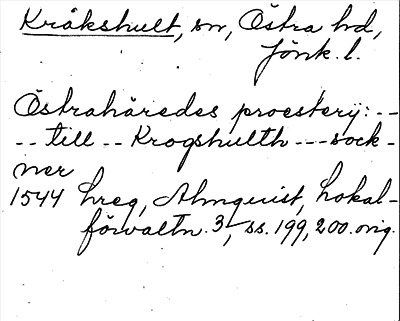 Kråkshult, sn, Östra hd,
Jönk. l.
Östrahäredes proesterij: --
-- till -- Krogshulth --- sock-
ner
1544 hreg, Almquist, Lokal-
förvaltn. 3, ss. 199, 200. orig.